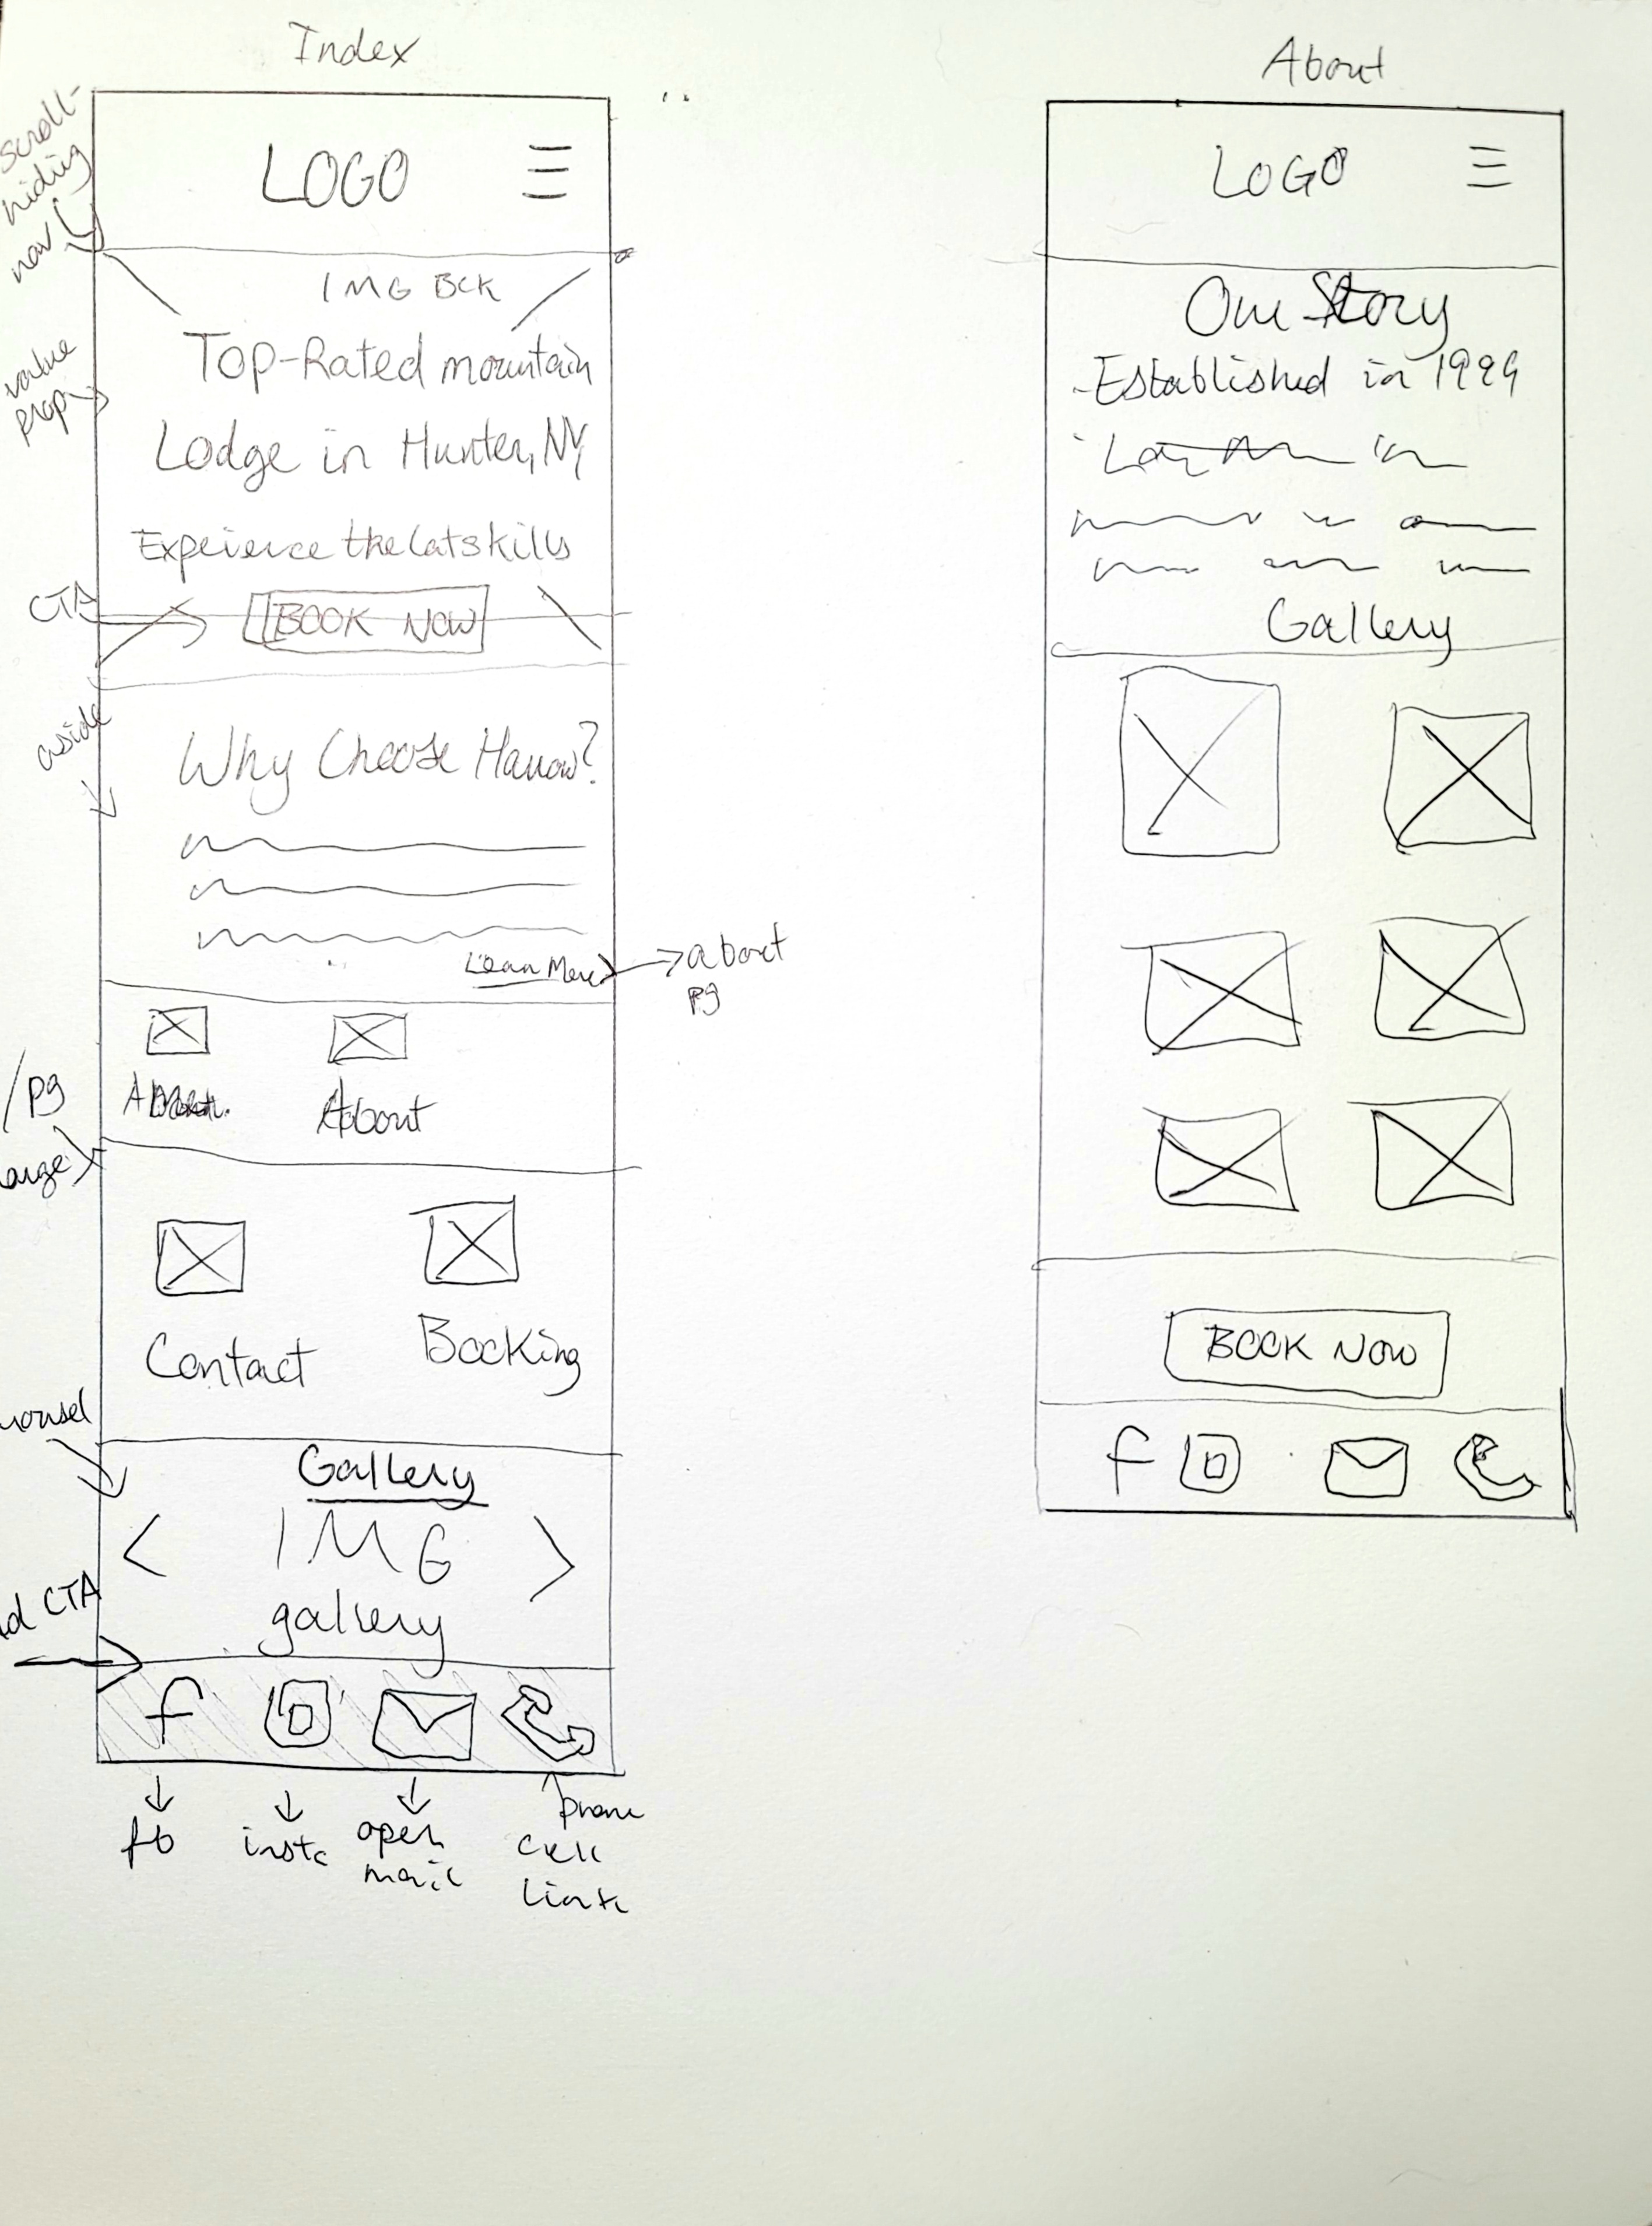 Index
scroll-
hiding
nav
LOGO
IMG BCK
value
prop
Top-Rated mountain
Lodge in Hunter, NY
Experience the Catskills
CTA
BOOK NOW
aside
Why Choose
Learn More
about
pg
/pg
About
Contact
Booking
Gallery
IMG
gallery
CTA
f
fb
insta
open
mail
phone
About
LOGO
Our Story
Established in
Gallery
BOOK NOW
f